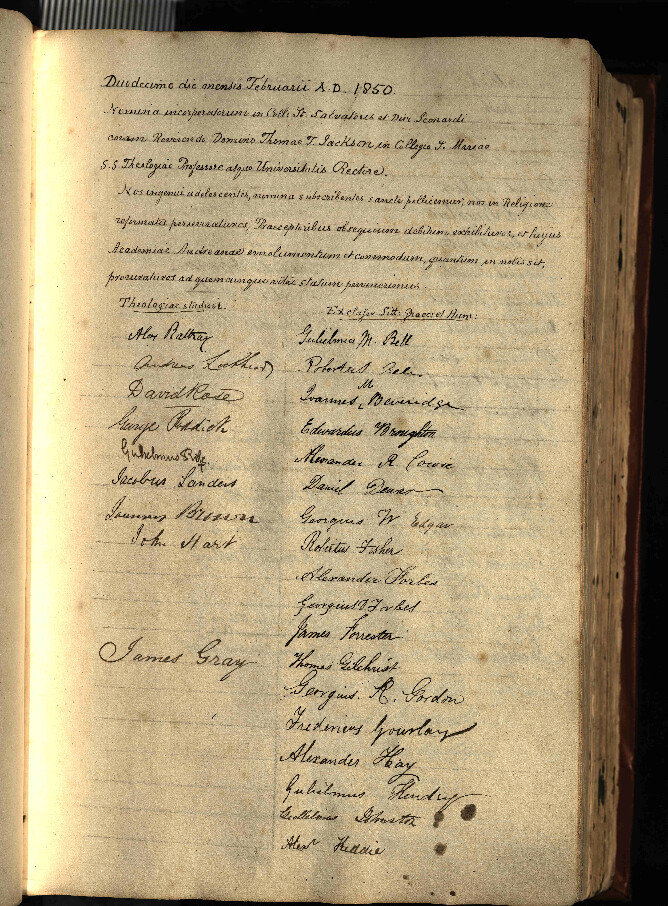 Duodecimo die mensis Februarii A.D. 1850.
Nomina incorporatorum in Coll: Sti Salvatoris et Divi Leonardi
coram Reverendo Domino Thoma T. Jackson in Collegio S. Mariae
S.S. Theologiae Professore atque Universitatis Rectore.
Nos ingenui adolescentes, nomina subscribentes sancte pollicemur, nos in Religione
reformata perseveraturos, Praeceptoribus obsequium debitum exhibituros, et hujus
Academiae Andreanae emolumentum et commodum, quantum in nobis sit,
procuraturos ad quemcunque vitae statum pervenerimus.
Theologiae studiosi.
Alex Rattray
Andrew Lockhead
David Rose
George Reddick
Gulielmus
Jacobus Landers
Joannes Brown
John Hart
James Gray
Ex classe Litt: Graec: et Hum:
Gulielmus M. Bell
Robertus
Joannes M Beveridge
Edwardus Broughton
Alexander R. Cowie
Daniel
Georgius W Edgar
Robertus Fisher
Alexander Forbes
Georgius Forbes
James Forrester
Thomas Gilchrist
Georgius. R. Gordon
Fredericus Gourlay
Alexander Hay
Gulielmus Hendry
Gulielmus Johnston
Alexr Keddie